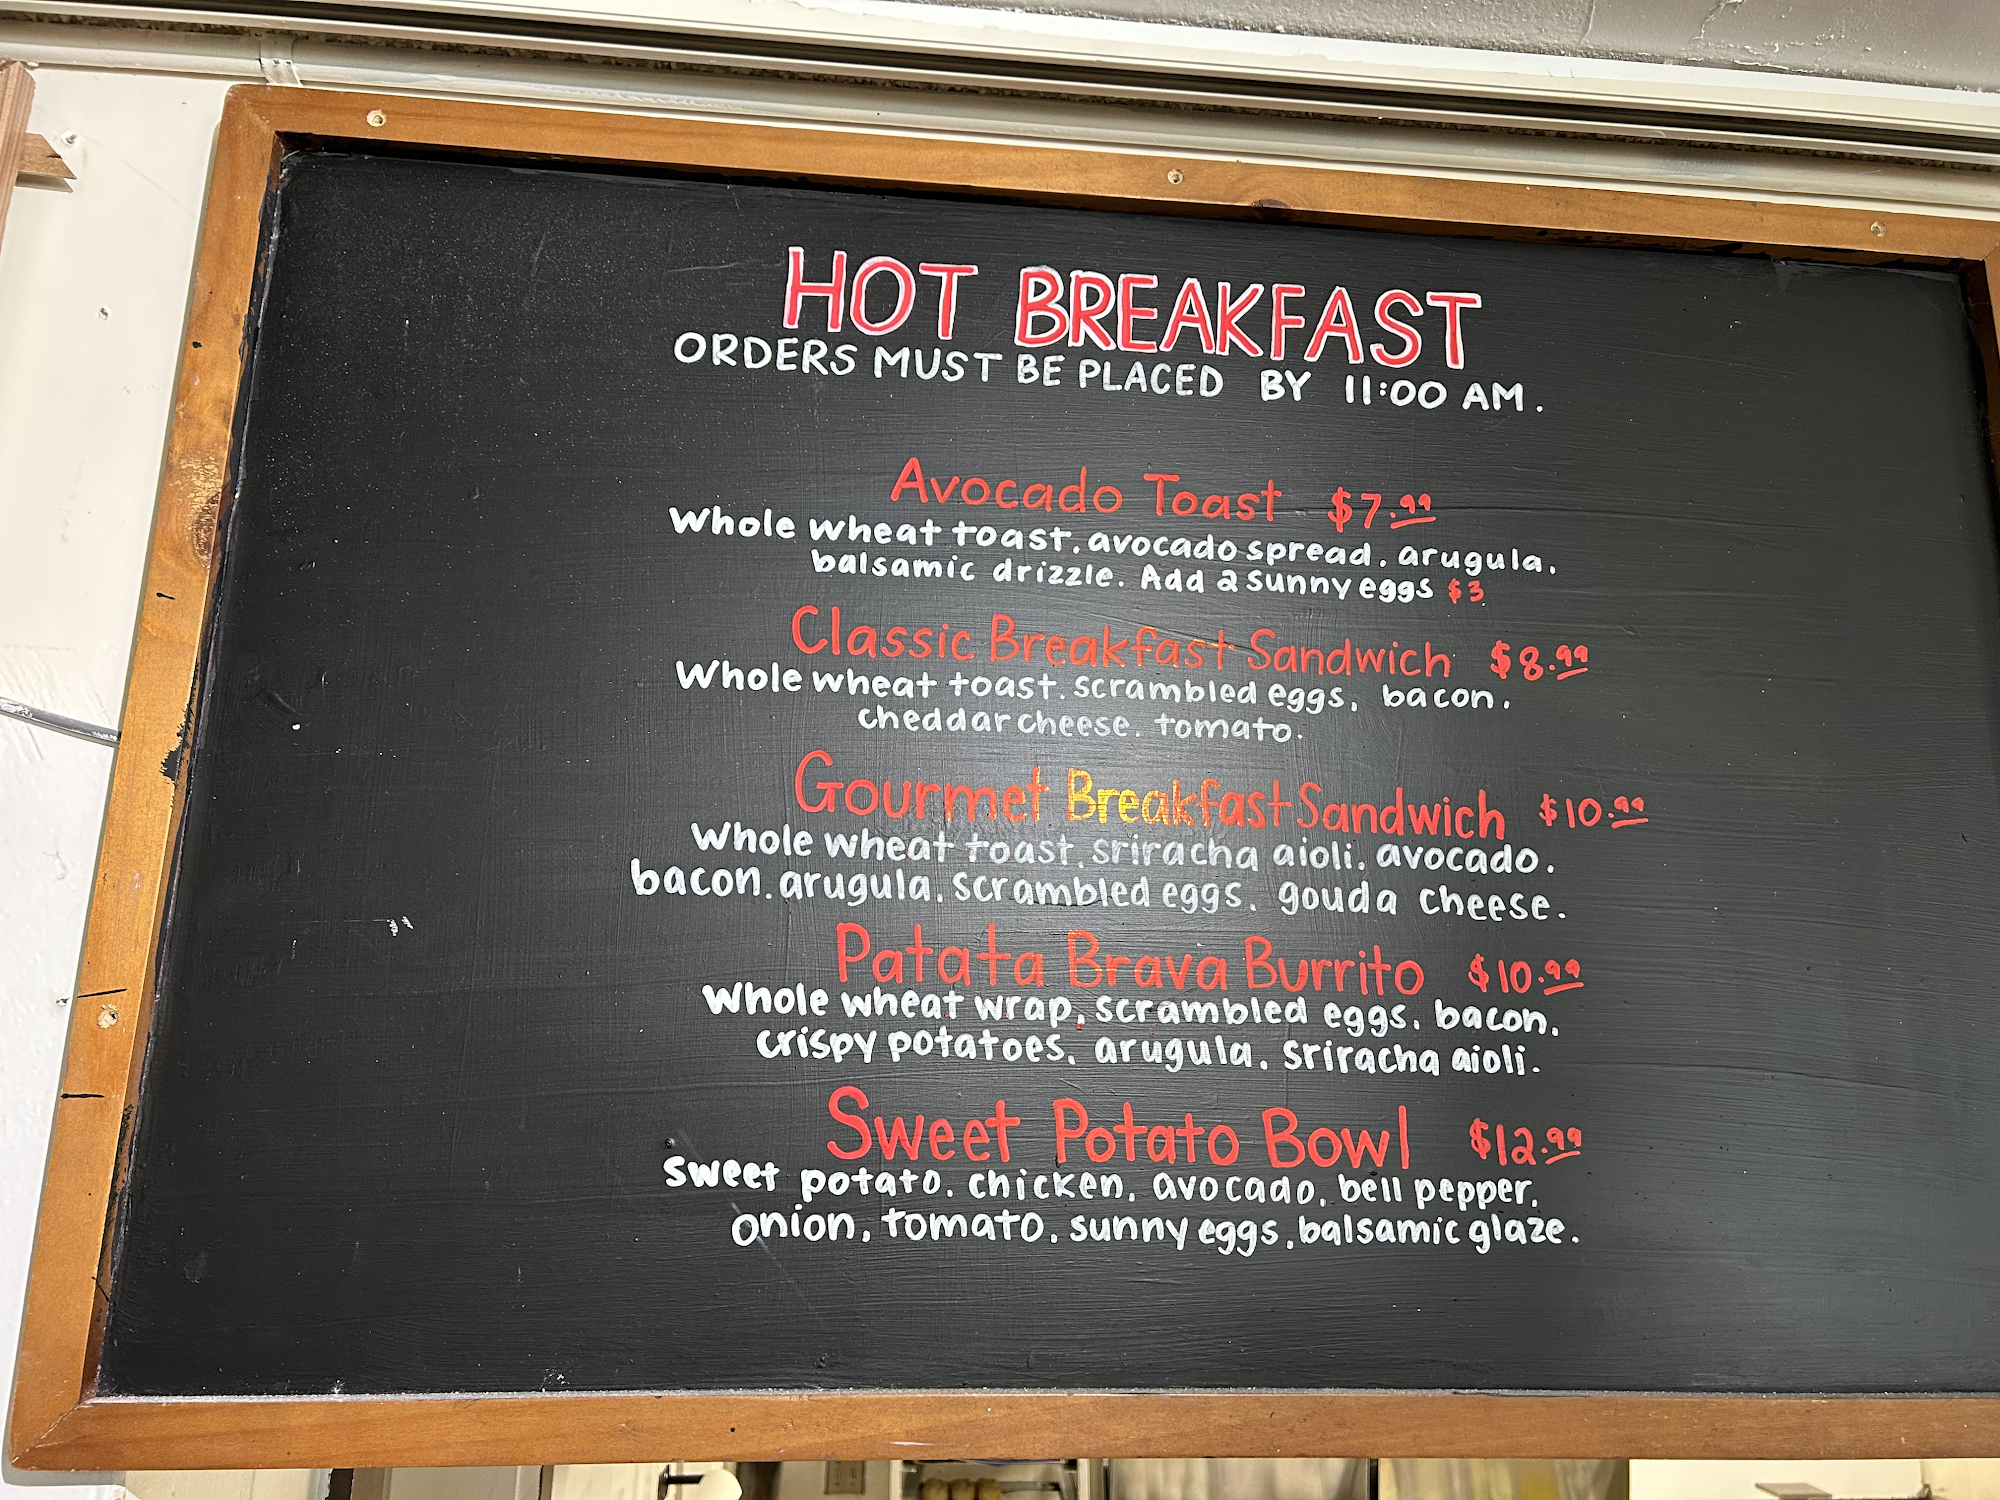 HOT BREAKFAST
ORDERS MUST BE PLACED BY 11:00 AM.
Avocado Toast $7.99
Whole wheat toast, avocado spread, arugula,
balsamic drizzle. Add 2 sunny eggs $3
Classic Breakfast Sandwich $8.99
Whole wheat toast, scrambled eggs, bacon,
cheddar cheese, tomato.
Gourmet Breakfast Sandwich $10.99
Whole wheat toast, sriracha aioli, avocado,
bacon, arugula, scrambled eggs, gouda cheese.
Patata Brava Burrito $10.99
Whole wheat wrap, scrambled eggs, bacon,
crispy potatoes, arugula, sriracha aioli.
Sweet Potato Bowl $12.99
sweet potato, chicken, avocado, bell pepper,
onion, tomato, sunny eggs, balsamic glaze.